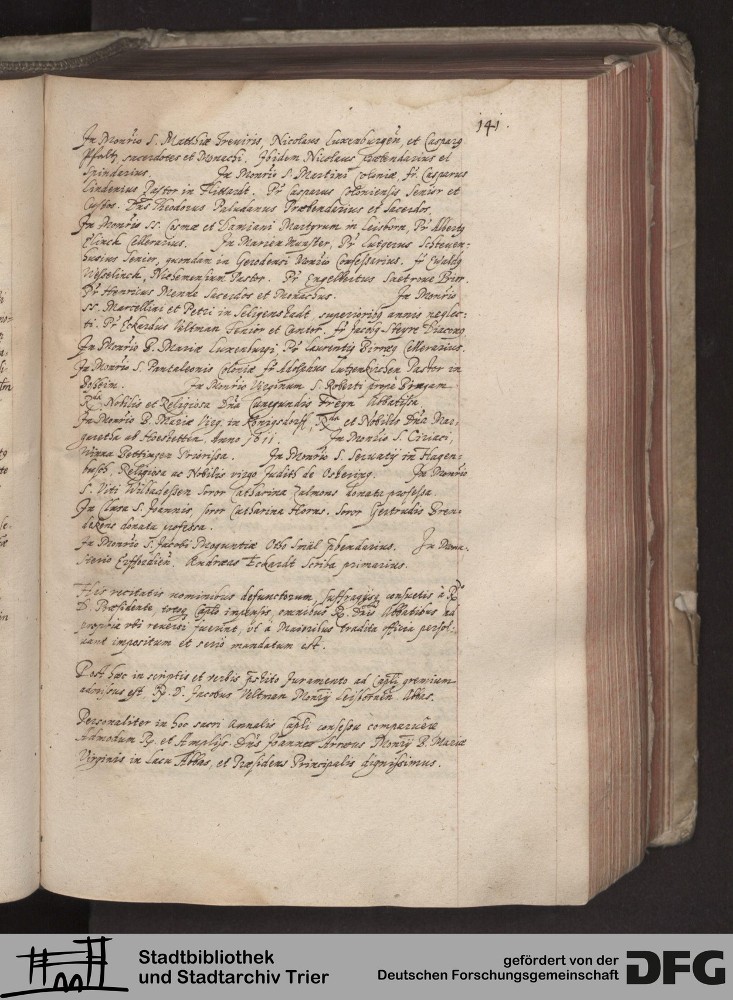 141.
In Monrio S. Matthiæ Treviris, Nicolaus Luxenburgen, et Casparg
Pfaltz sacerdotes et Monachi. Ibidem Nicolaus Præbendarius et
Spindarius. In Monrio S. Martini Coloniæ, fr. Casparus
Lindenius Pastor in Flittardt. Pr Casparus Coloniensis Senior et
Custos. Dns Theodorus Paludanus Præbendarius et Sacerdos.
In Monrio SS. Cosmæ et Damiani Martyrum in Leisborn, Pr Albertg
Clinck Cellerarius. In Marien Munster, Pr Lutgerus
husius Senior, quondam in Gerodensi Confessarius. fr
Pastor. Pr Engelbertus Prior.
Pr Henricus Menne Sacerdos et Monachus. In Monrio
SS. Marcellini et Petri in Seligenstadt, superioribus annis neglec-
ti. Pr Eckardus Veltman Senior et Cantor. fr Jacobg Steyre Diacong
In Monrio B. Mariæ Luxenburgi, Pr Laurentig Birreg Cellerarius.
In Monrio S. Pantaleonis Coloniæ fr Adolphus Lutzenkirchen Pastor in
In Monrio Virginum S. Roberti prope Bingam
Rda Nobilis et Religiosa Dna Cunegundis Freyn Abbatissa
In Monrio B. Mariæ Virg. in Königsdorff, Rda et Nobilis Dna Mar-
garetha ab Hoesbettin. Anno 1611. In Monrio S. Ciriaci,
Winna Bettingen Priorissa. In Monrio S. Servatij in Hagen-
busch, Religiosa ac Nobilis virgo Judith de Ossering. In Monrio
S. Viti Wilhadessen Soror Catharina Salmons donata professa.
In Clusa S. Joannis, soror Catharina Horns. Soror Gertrudis Bren-
dekens donata professa.
In Monrio S. Jacobi Moguntiæ Otto Smül Præbendarius. In Mona-
sterio Erffordien. Andræas Eckardt Scriba primarius.
His recitatis nominibus defunctorum, suffragijsq consuetis à R
D. Præsidente, totoq Caplo impensis, omnibus RR. Dnis Abbatibus ad
propria ubi reversi fuerint, ut à Maioribus tradita officia persol-
vant impositum et serio mandatum est.
Post hæc in scriptis et verbis præstito Juramento ad Capli gremium
admissus est R. D. Jacobus Veltman Monrij Leisbornen. Abbas.
Personaliter in hoc sacri Annalis Capli consessu comparuere
Admodum R. et Ampliss. Dns Joannes Arnotus Monrij B. Mariæ
Virginis in Lacu Abbas, et Præsidens Principalis dignissimus.
Stadtbibliothek
und Stadtarchiv Trier
gefördert von der
Deutschen Forschungsgemeinschaft
DFG